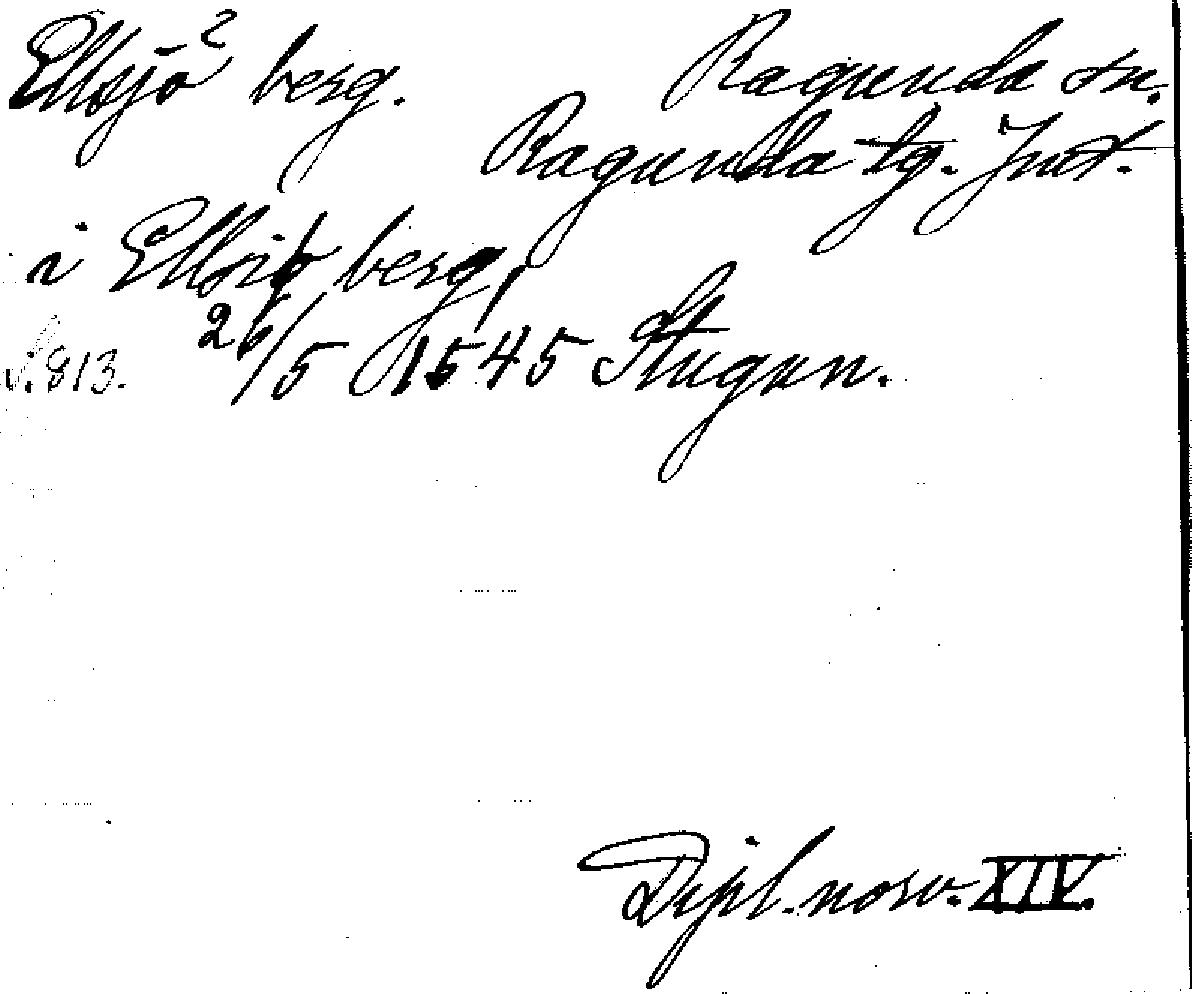 Ellsjö berg. Ragunda sn.
Ragunda tg. Jmt.
i Ellsiø berg,
S. 813. 26/5 1545 Stugun.
Dipl. norv. XIV.